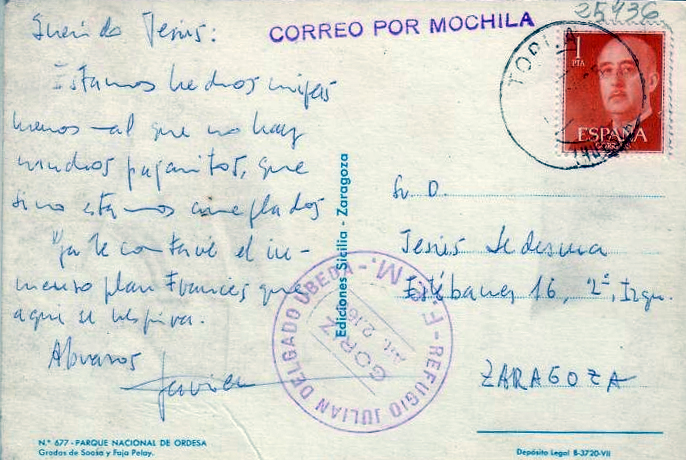 25436
CORREO POR MOCHILA
Querido Jesús:
Estamos hechos migas
menos-al que no hay
muchos pajaritos, que
si no estamos arreglados
Ya te contaré el in-
menso plan Francés que
aquí se respira.
Abrazos
Javier
Nº 677 - PARQUE NACIONAL DE ORDESA
Gradas de Soaso y Faja Pelay.
Ediciones Sicilia - Zaragoza
F.E.M. - REFUGIO JULIAN DELGADO UBEDA -
GORIZ
Alt. 2.16
TORLA
1
PTA
ESPAÑA
CORREOS
Sr. D.
Jesús Ledesma
Estébanez 16, 2º, Izqu.
ZARAGOZA
Depósito Legal B-3720-VII